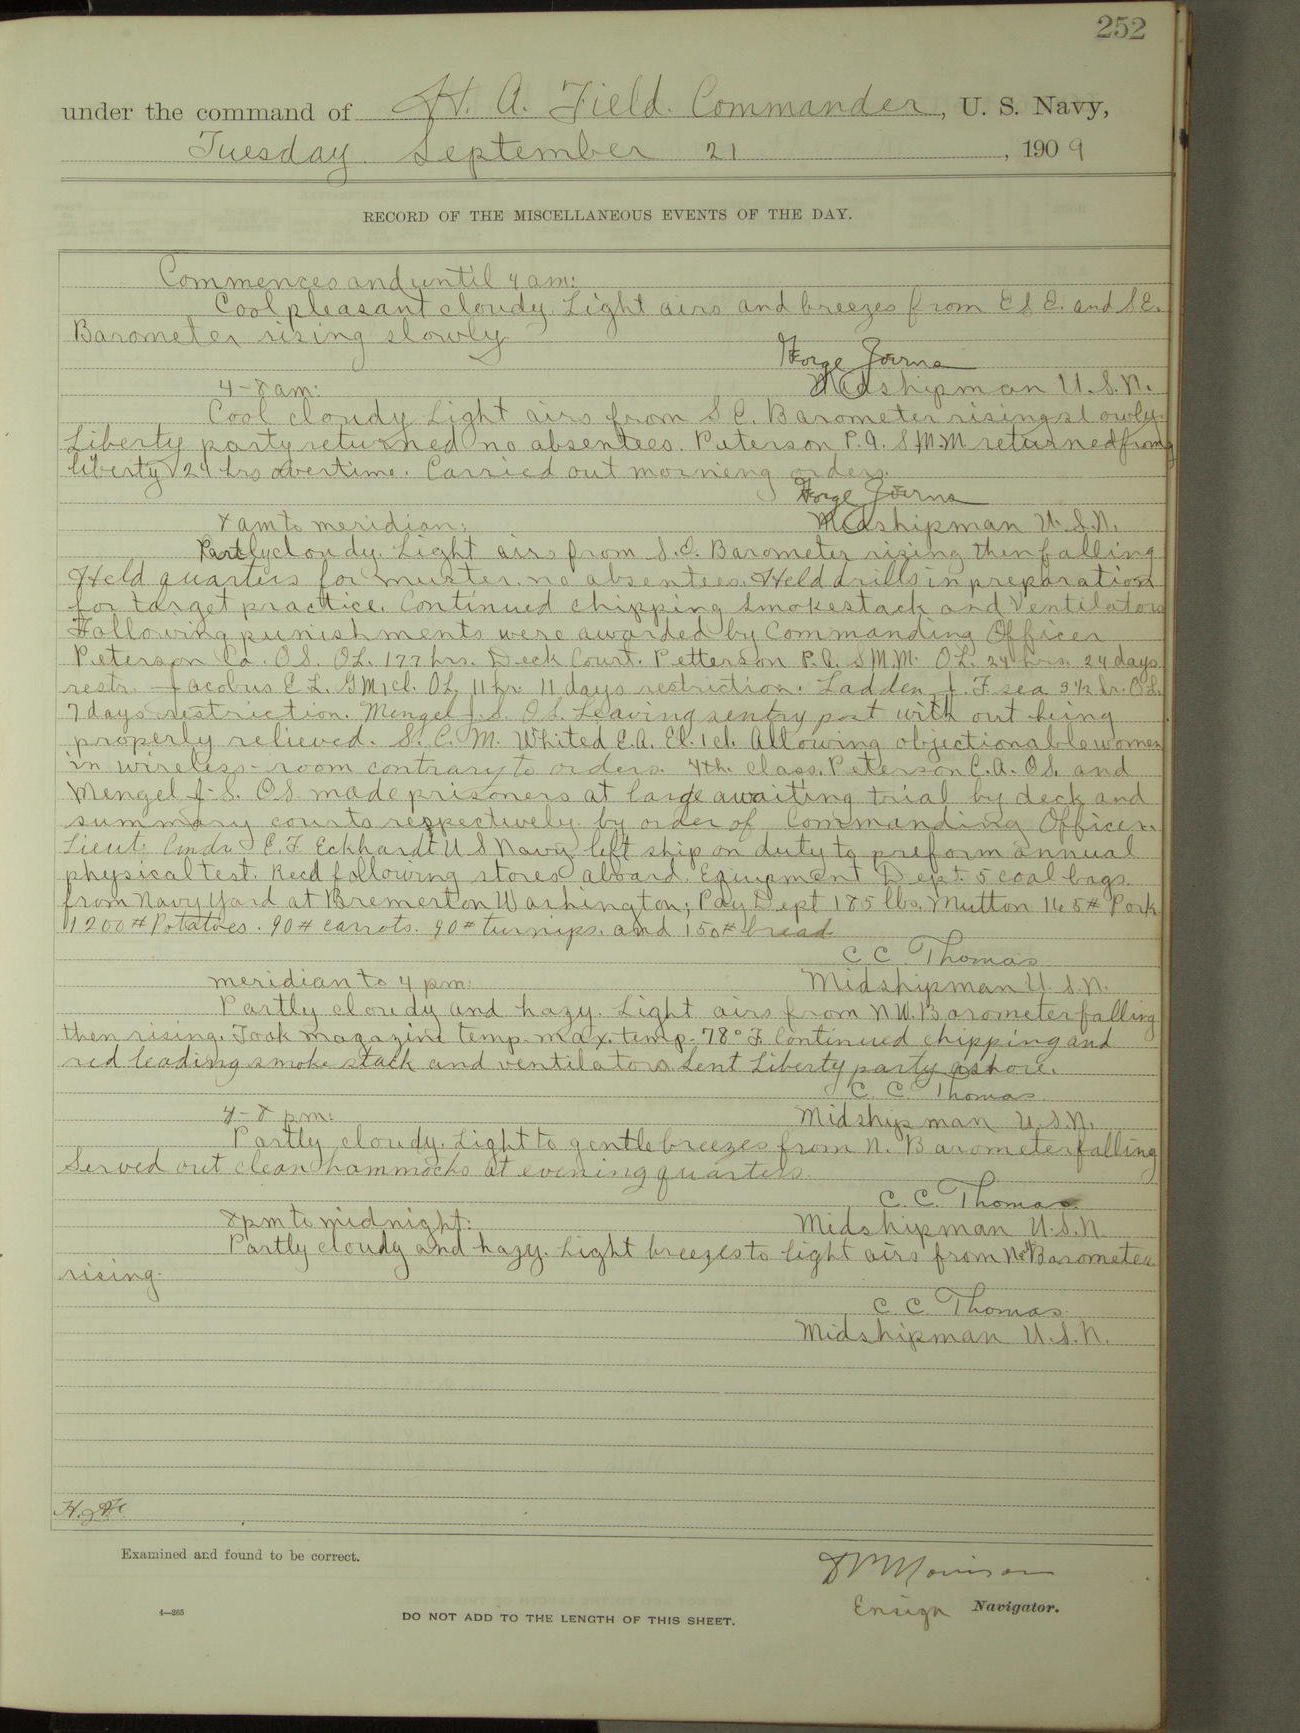 252
under the command of H. A. Field. Commander, U. S. Navy,
Tuesday. September 21, 1909
RECORD OF THE MISCELLANEOUS EVENTS OF THE DAY.
Commences and until 4 am:
Cool pleasant cloudy. Light airs and breezes from E S E. and S E.
Barometer rising slowly
4-8 am:
Midshipman U.S.N.
Cool cloudy Light airs from S E. Barometer rising slowly.
Liberty party returned no absentees. Peterson P.A. S M.M returned from
liberty 24 hrs overtime. Carried out morning orders.
8 am to meridian:
Midshipman U.S.N.
Partly cloudy. Light airs from S.E. Barometer rising then falling
Held quarters for muster no absentees. Held drills in preparation
for target practice. Continued chipping smokestack and Ventilators
Following punishments were awarded by Commanding Officer
Peterson Ca. O.S. OL. 177 hrs. Deck Court. Petterson P.A. S M.M. OL. 24 hrs. 24 days
restr. Jacobus C L. G M 1 cl. OL 11 hr 11 days restriction. Ladden J. F. sea 3½ hr. O L.
7 days restriction. Mengel J. S. O S. Leaving sentry post with out being
properly relieved. S. C. M. Whited E.A. El. 1 cl. Allowing objectionable women
in wireless-room contrary to orders. 4th. class. Peterson C.A. O S. and
Mengel J. S. O S. made prisoners at large awaiting trial by deck and
summary courts respectively by order of Commanding Officer.
Lieut. Cmdr E. F. Eckhardt U S Navy left ship on duty to preform annual
physical test. Recd following stores aboard. Equipment Dept. 5 coal bags
from Navy Yard at Bremerton Washington; Pay Dept 185 lbs. Mutton 165# Pork
1200# Potatoes. 90# carrots. 90# turnips. and 150# bread
C. C. Thomas
meridian to 4 pm:
Midshipman U.S.N.
Partly cloudy and hazy. Light airs from N W. Barometer falling
then rising. Took magazine temp. max. temp. 78° F Continued chipping and
red leading smoke stack and ventilators Sent Liberty party ashore.
C. C. Thomas
4-8 pm:
Midshipman U.S.N.
Partly cloudy. Light to gentle breezes from N. Barometer falling
Served out clean hammocks at evening quarters.
C. C. Thomas
8 pm to midnight:
Midshipman U.S.N
Partly cloudy and hazy. Light breezes to light airs from Barometer
rising.
C. C. Thomas
Midshipman U.S.N.
Examined and found to be correct.
Ensign Navigator.
4—265
DO NOT ADD TO THE LENGTH OF THIS SHEET.